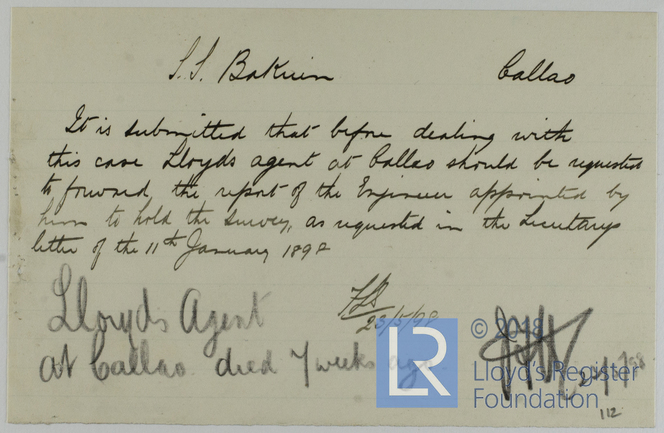 S.S. Bakuin Callao
It is submitted that before dealing with
this case Lloyds agent at Callao should be requested
to forward the report of the Engineer appointed by
him to hold the survey, as requested in the Secretarys
letter of the 11th January 1898
Lloyds Agent
at Callao died 7 weeks ago
23/5/98
LR
© 2018
Lloyd's Register
Foundation
112